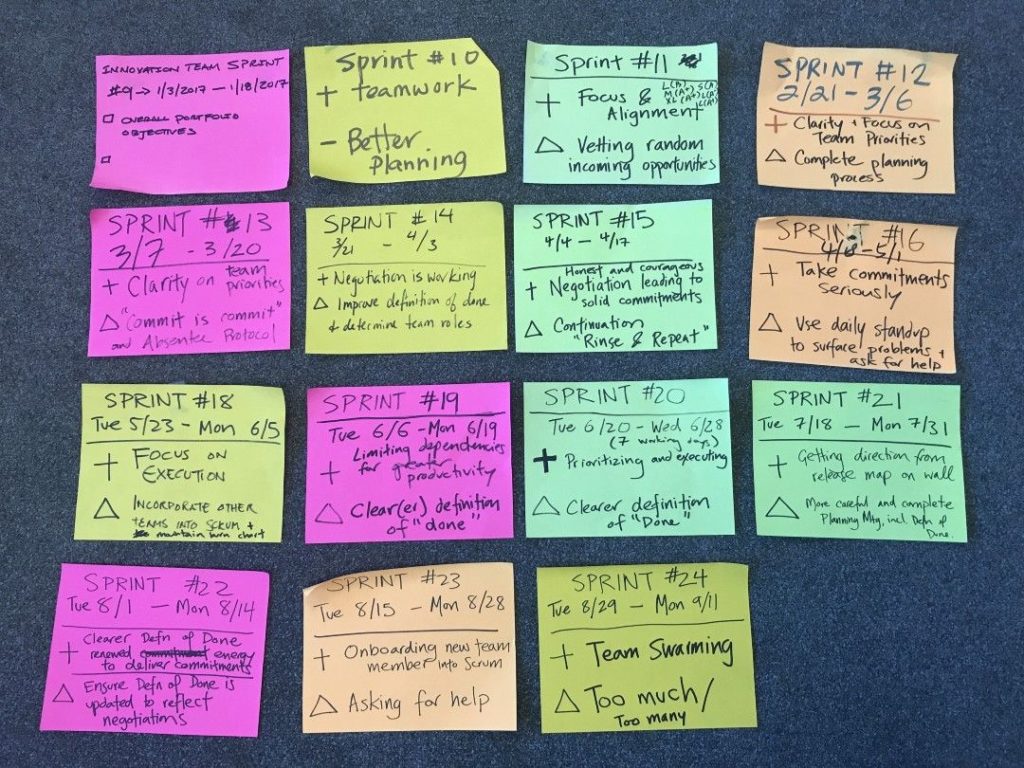 INNOVATION TEAM SPRINT
#9 → 1/3/2017 — 1/18/2017
OVERALL PORTFOLIO
OBJECTIVES
Sprint #10
+ teamwork
- Better
planning
Sprint #11
+ Focus &
Alignment
L(A)
M(A+) S(A)
XL(A+) L(A)
L(A+)
△ Vetting random
incoming opportunities
SPRINT #12
2/21 - 3/6
+ Clarity + Focus on
Team Priorities
△ Complete planning
process
SPRINT #13
3/7 - 3/20
+ Clarity on team
priorities
△ "Commit is commit"
and Absentee Protocol
SPRINT #14
3/21 - 4/3
+ Negotiation is working
△ Improve definition of done
& determine team roles
SPRINT #15
4/4 - 4/17
Honest and courageous
+ Negotiation leading to
solid commitments
△ Continuation
"Rinse & Repeat"
SPRINT #16
- 5/1
+ Take commitments
Seriously
△ Use daily standup
to surface problems +
ask for help
SPRINT #18
Tue 5/23 - Mon 6/5
+ FOCUS ON
EXECUTION
△ INCORPORATE OTHER
TEAMS INTO SCRUM +
maintain burn chart
SPRINT #19
Tue 6/6 - Mon 6/19
Limiting dependencies
+ for greater
productivity
△ Clear(er) definition
of "done"
SPRINT #20
Tue 6/20 - Wed 6/28
(7 working days)
+ Prioritizing and executing
△ Clearer definition
of "Done"
SPRINT #21
Tue 7/18 - Mon 7/31
+ Getting direction from
release map on wall
△ More careful and complete
Planning Mtg, incl. Defn of
Done.
SPRINT #22
Tue 8/1 - Mon 8/14
+ Clearer Defn of Done
renewed energy
to deliver commitments
△ Ensure Defn of Done is
updated to reflect
negotiations
SPRINT #23
Tue 8/15 - Mon 8/28
+ Onboarding new team
member into Scrum
△ Asking for help
SPRINT #24
Tue 8/29 - Mon 9/11
+ Team Swarming
△ Too much/
Too many